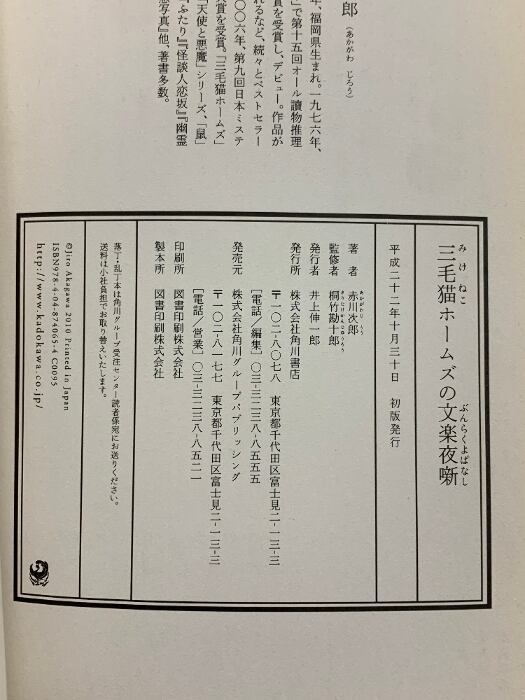 郎(あかがわ じろう)
年、福岡県生まれ。一九七六年、
」で第十五回オール讀物推理
賞を受賞し、デビュー。作品が
れるなど、続々とベストセラー
〇〇六年、第九回日本ミステ
大賞を受賞。「三毛猫ホームズ」
「天使と悪魔」シリーズ、「鼠」
『ふたり』『怪談人恋坂』『幽霊
念写真』他、著書多数。
三毛猫ホームズの文楽夜噺
みけねこ
ぶんらくよばなし
平成二十二年十月三十日 初版発行
著者 赤川次郎
あかがわじろう
監修者 桐竹勘十郎
きりたけかんじゅうろう
発行者 井上伸一郎
発行所 株式会社角川書店
〒一〇二-八〇七八 東京都千代田区富士見二-一三-三
[電話/編集]〇三-三二三八-八五五五
発売元 株式会社角川グループパブリッシング
〒一〇二-八一七七 東京都千代田区富士見二-一三-三
[電話/営業]〇三-三二三八-八五二一
印刷所 図書印刷株式会社
製本所 図書印刷株式会社
落丁・乱丁本は角川グループ受注センター読者係宛にお送りください。
送料は小社負担でお取り替えいたします。
©Jiro Akagawa 2010 Printed in Japan
ISBN978-4-04-874065-4 C0095
http://www.kadokawa.co.jp/